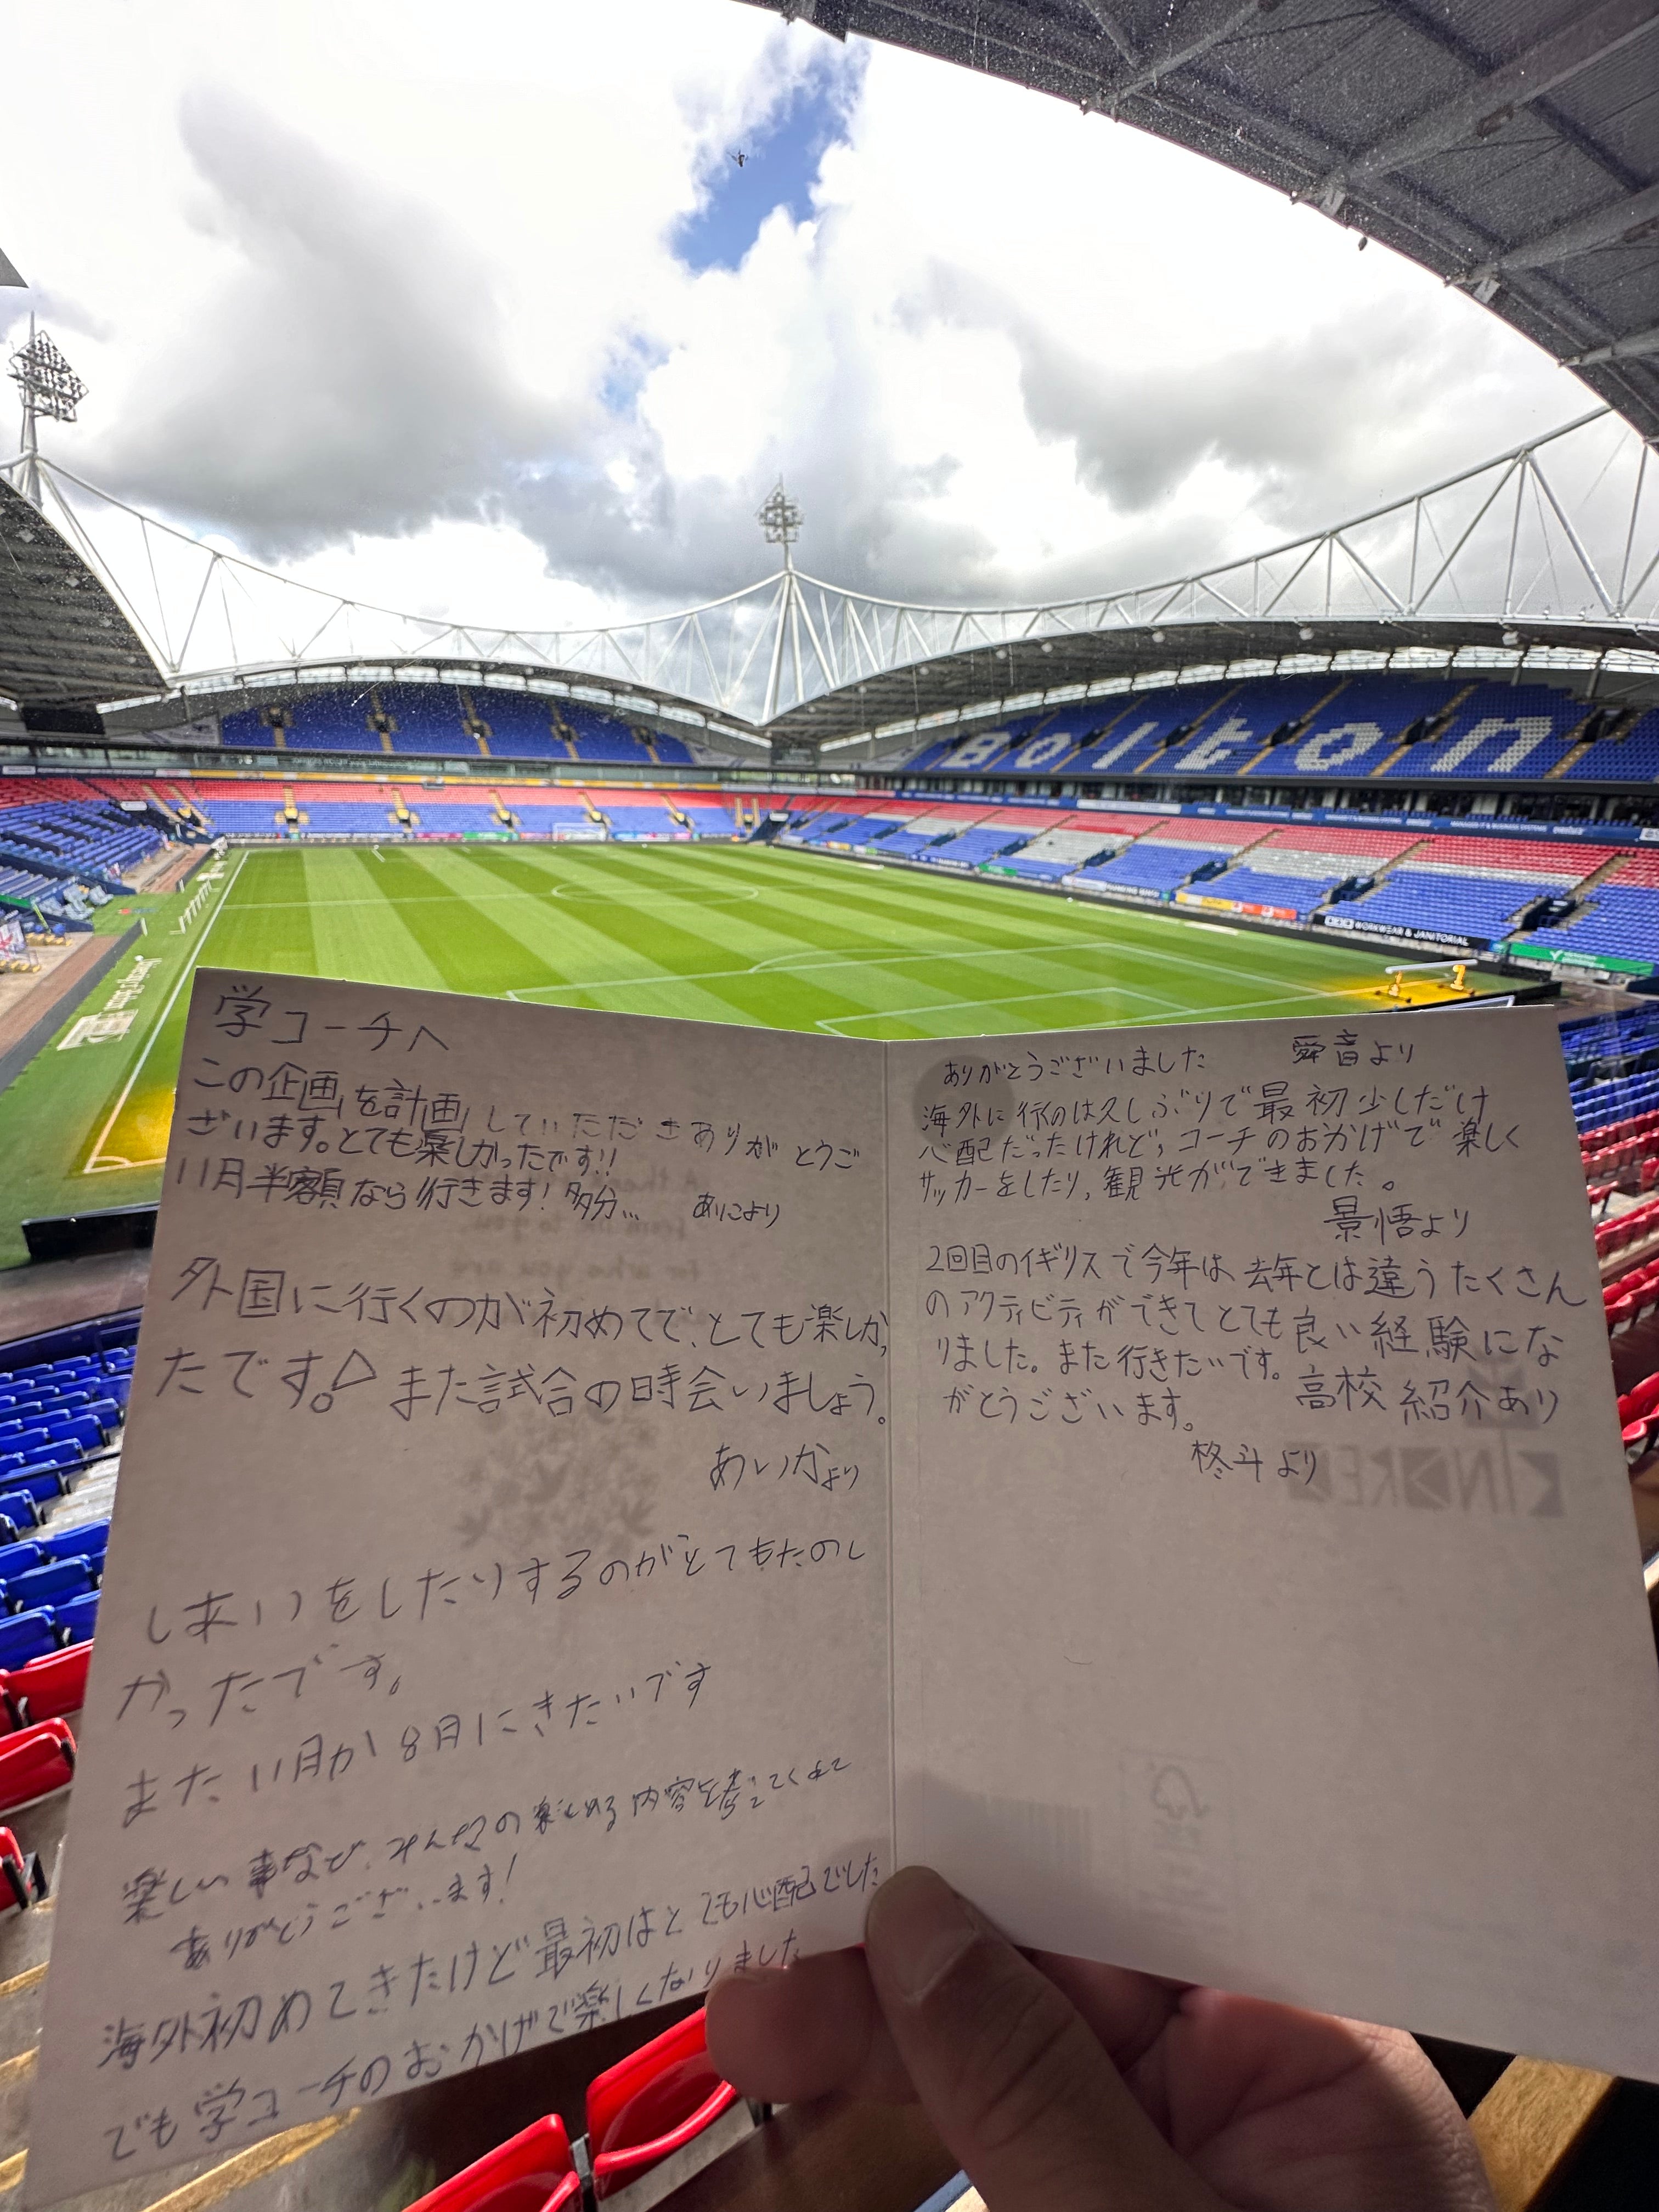 Bolton
WORKWEAR & JANITORIAL
学コーチへ
この企画を計画していただきありがとうご
ざいます。とても楽しかったです!!
11月半額なら行きます!多分...
ありこより
外国に行くのが初めてで、とても楽しかっ
たです。また試合の時会いましょう。
あいかより
しあいをしたりするのがとてもたのし
かったです。
また11月か8月にきたいです
楽しい事など、みんなの楽しめる内容を考えてくれて
ありがとうございます!
海外初めてきたけど最初はとても心配でした
でも学コーチのおかげで楽しくなりました
ありがとうございました 舜音より
海外に行くのは久しぶりで最初少しだけ
心配だったけれど、コーチのおかげで楽しく
サッカーをしたり、観光ができました。
景悟より
2回目のイギリスで今年は去年とは違うたくさん
のアクティビティができてとても良い経験にな
りました。また行きたいです。高校紹介あり
がとうございます。
柊斗より
KINDRED